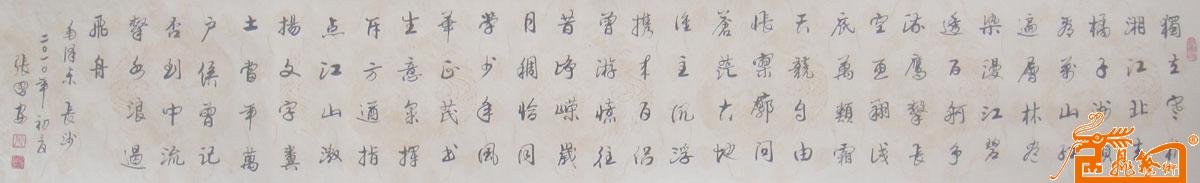 獨立寒秋
湘江北去
橘子洲頭
看萬山紅
遍層林盡
染漫江碧
透百舸爭
流鷹擊長
空魚翔淺
底萬類霜
天競自由
悵寥廓問
蒼茫大地
誰主沉浮
携來百侣
曾游憶往
昔崢嶸歲
月稠恰同
學少年風
華正茂書
生意氣揮
斥方遒指
点江山激
揚文字糞
土當年萬
户侯曾記
否到中流
擊水浪遏
飛舟
毛澤東 長沙
二〇一〇年初夏
張